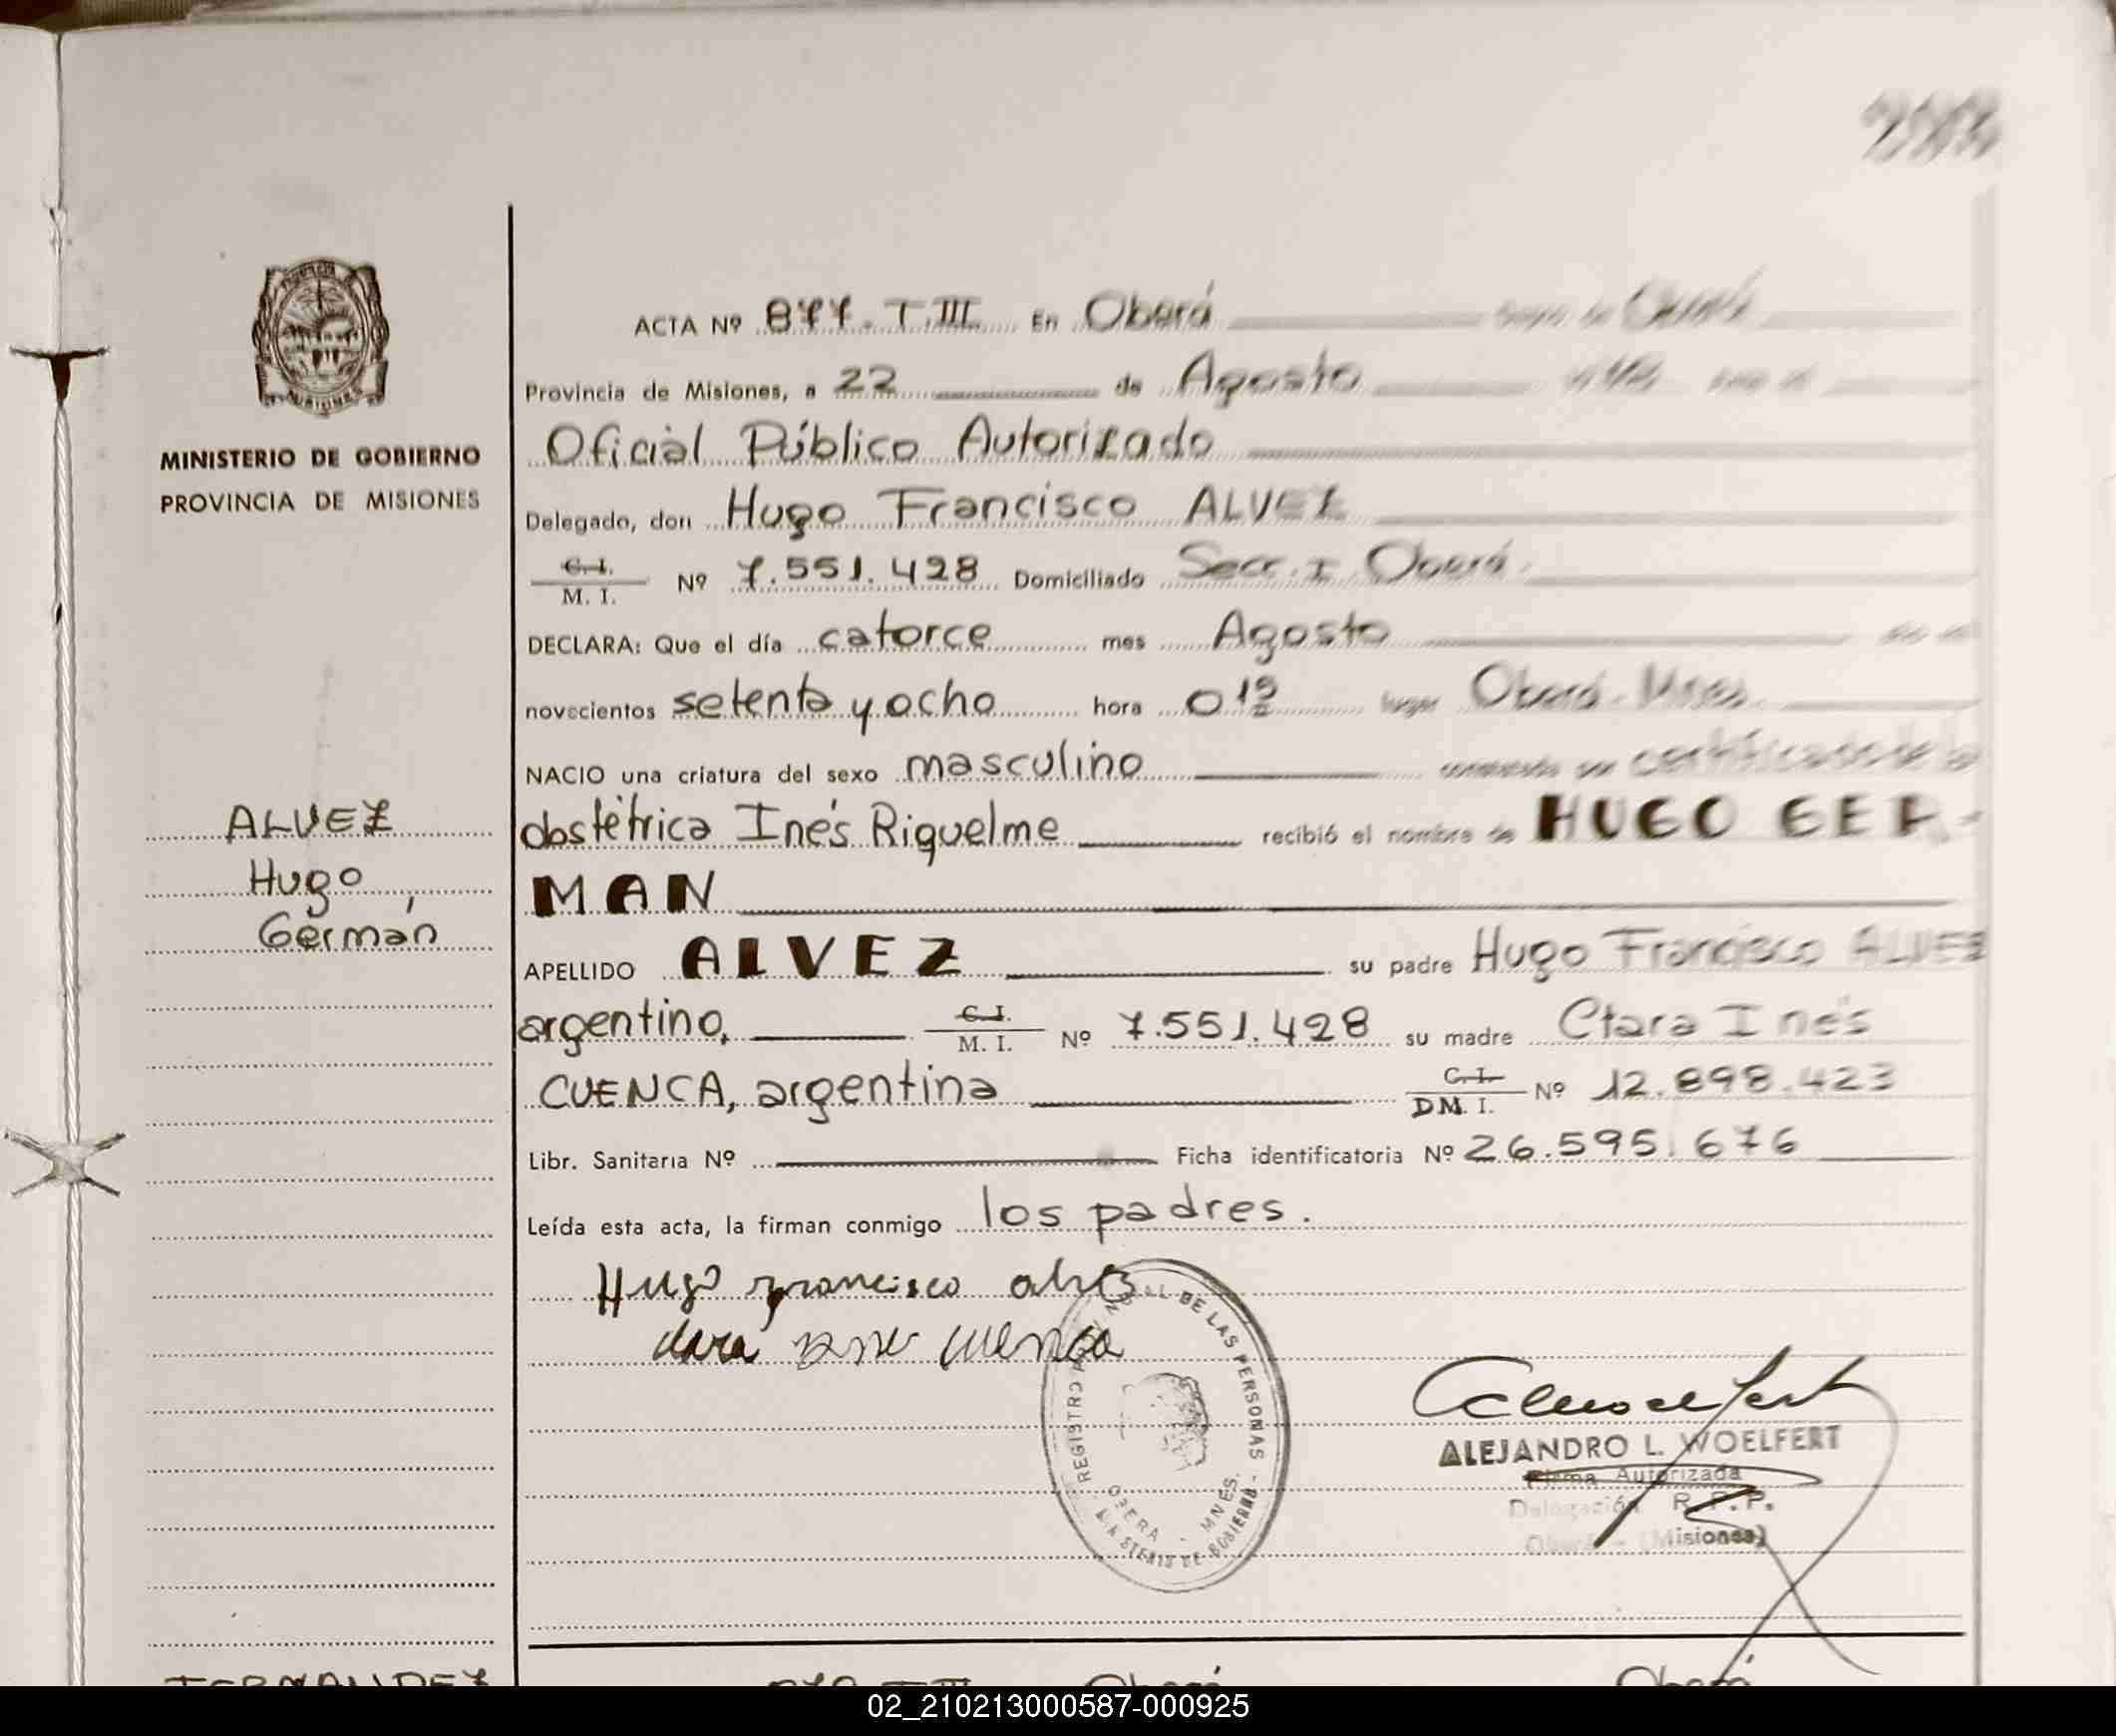 MINISTERIO DE GOBIERNO
PROVINCIA DE MISIONES
ALVEZ
Hugo
Germán
ACTA Nº 877. T.III En Oberá
Provincia de Misiones, a 22 de Agosto
Oficial Público Autorizado
Delegado, don Hugo Francisco ALVEZ
C.I. M. I. Nº 7.551.428 Domiciliado Secc. I Oberá.
DECLARA: Que el día catorce mes Agosto
novecientos setenta y ocho hora 0 15 lugar Oberá - Mnes.
NACIO una criatura del sexo masculino constatado por certificado de la
obstétrica Inés Riquelme recibió el nombre de HUGO GER-
MAN
APELLIDO ALVEZ su padre Hugo Francisco ALVEZ
argentino, C.I. M. I. Nº 7.551.428 su madre Clara Inés
CUENCA, argentina C.I. DM. I. Nº 12.898.423
Libr. Sanitaria Nº Ficha identificatoria Nº 26.595.676
Leída esta acta, la firman conmigo los padres.
Hugo Francisco Alvez
Clara Ines Cuenca
REGISTRO PROVINCIAL DE LAS PERSONAS - MINISTERIO DE GOBIERNO
OBERA - MNES.
ALEJANDRO L. WOELFERT
Firma Autorizada
Delegación R. P. P.
Oberá - (Misiones)
Oberá
02_210213000587-000925